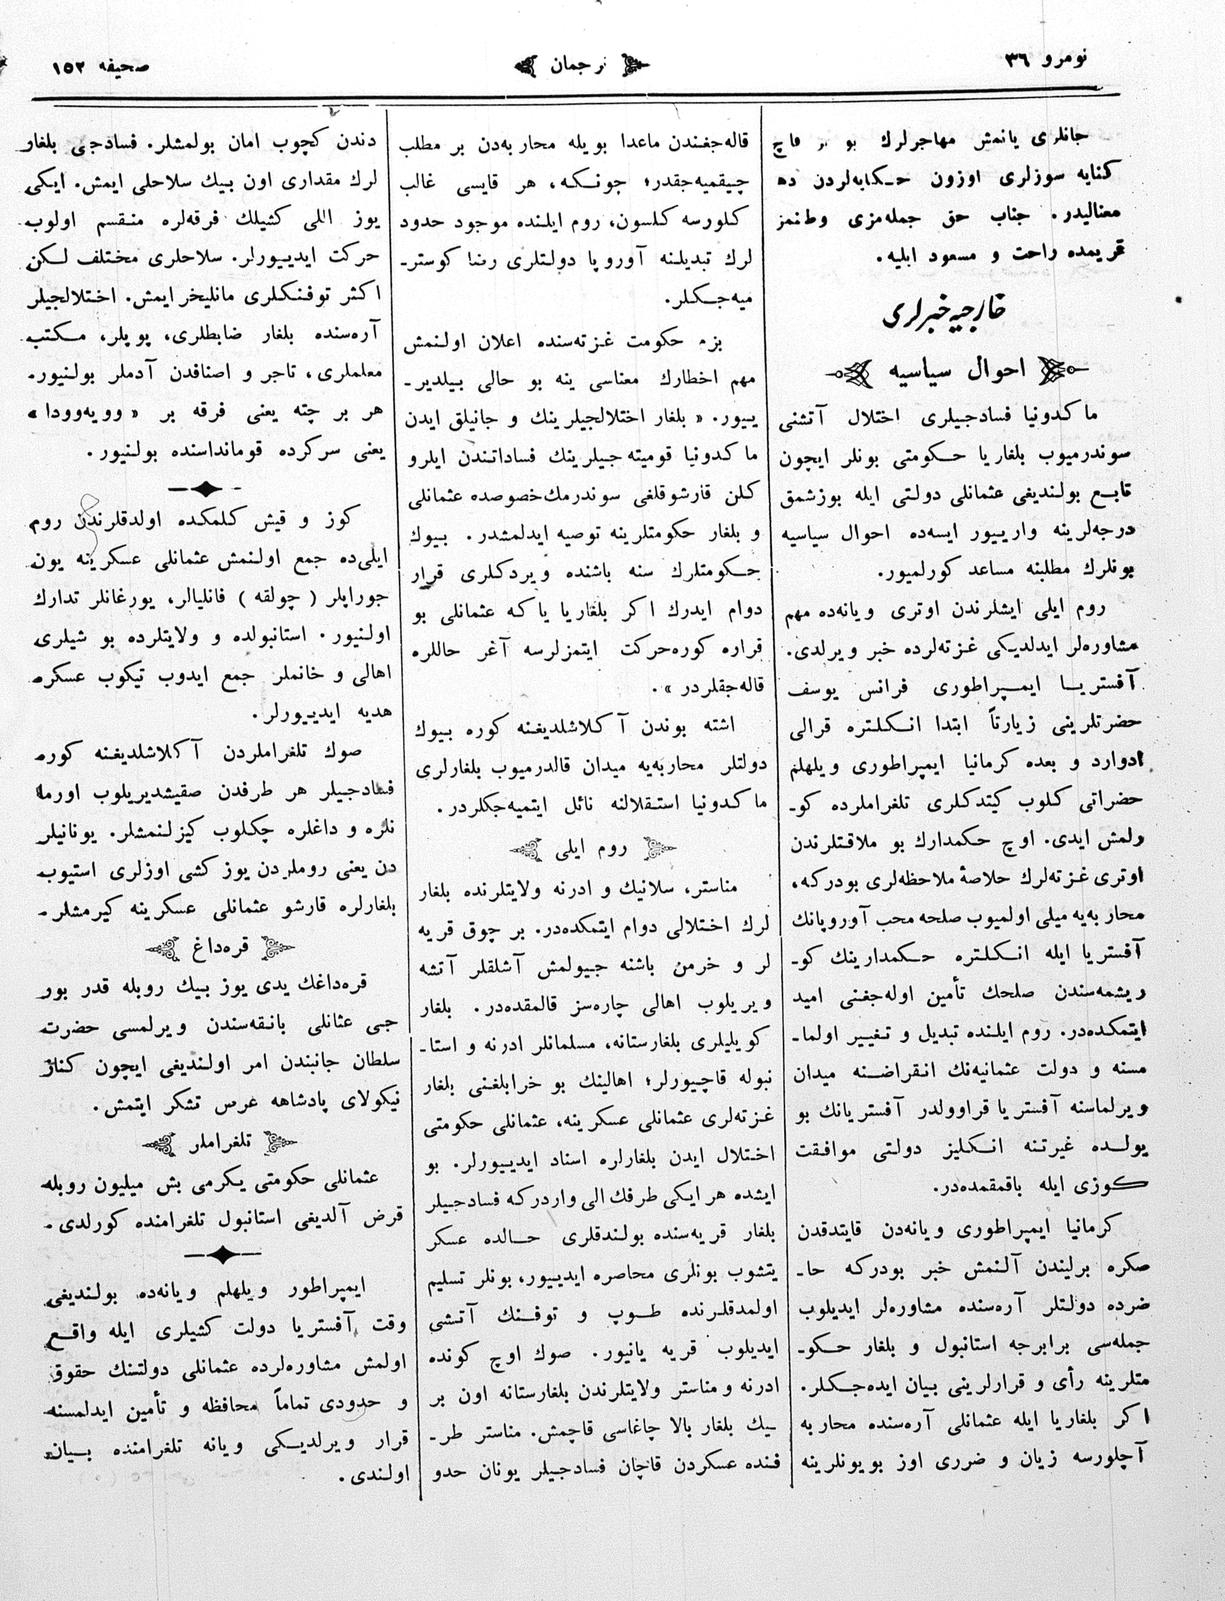 نومرو ٣٦
ترجمان
صحيفه ١٥٢
جانلرى يانمش مهاجرلرك بو بر قاچ
كنايه سوزلرى اوزون حكايه‌لردن ده
معناليدر. جناب حق جمله‌مزى وطنمز
قريمده راحت و مسعود ايليه.
خارجيه خبرلرى
احوال سياسيه
ماكدونيا فسادجيلرى اختلال آتشنى
سوندرميوب بلغاريا حكومتى بونلر ايچون
تابع بولنديغى عثمانلى دولتى ايله بوزشمق
درجه‌لرينه وارييور ايسه‌ده احوال سياسيه
بونلرك مطلبنه مساعد كورلميور.
روم ايلى ايشلرندن اوترى ويانه‌ده مهم
مشاوره‌لر ايدلديكى غزته‌لرده خبر ويرلدى.
آفستريا ايمپراطورى فرانس يوسف
حضرتلرينى زيارتاً ابتدا انكلتره قرالى
ادوارد و بعده كرمانيا ايمپراطورى ويلهلم
حضراتى كلوب كيتدكلرى تلغراملرده كو-
رلمش ايدى. اوچ حكمدارك بو ملاقتلرندن
اوترى غزته‌لرك خلاصۀ ملاحظه‌لرى بودركه،
محاربه‌يه ميلى اولميوب صلحه محب آوروپانك
آفستريا ايله انكلتره حكمدارينك كو-
ريشمه‌سندن صلحك تأمين اوله‌جغنى اميد
ايتمكده‌در. روم ايلنده تبديل و تغيير اولما-
مسنه و دولت عثمانيه‌نك انقراضنه ميدان
ويرلماسنه آفستريا قراوولدر آفستريانك بو
يولده غيرتنه انكليز دولتى موافقت
كوزى ايله باقمقمده‌در.
كرمانيا ايمپراطورى ويانه‌دن قايتدقدن
صكره برليندن آلنمش خبر بودركه حا-
ضرده دولتلر آره‌سنده مشاوره‌لر ايديلوب
جمله‌سى برابرجه استانبول و بلغار حكو-
متلرينه رأى و قرارلرينى بيان ايده‌جكلر.
اكر بلغاريا ايله عثمانلى آره‌سنده محاربه
آچلورسه زيان و ضررى اوز بويونلرينه
قاله‌جغندن ماعدا بويله محاربه‌دن بر مطلب
چيقميه‌جقدر؛ چونكه، هر قايسى غالب
كلورسه كلسون، روم ايلنده موجود حدود
لرك تبديلنه آوروپا دولتلرى رضا كوستر-
ميه‌جكلر.
بزم حكومت غزته‌سنده اعلان اولنمش
مهم اخطارك معناسى ينه بو حالى بيلدير-
ييور. « بلغار اختلالجيلرينك و جانيلق ايدن
ماكدونيا قوميته‌جيلرينك فساداتندن ايلرو
كلن قارشوقلغى سوندرمك خصوصده عثمانلى
و بلغار حكومتلرينه توصيه ايدلمشدر. بيوك
حكومتلرك سنه باشنده ويردكلرى قرار
دوام ايدرك اكر بلغاريا ياكه عثمانلى بو
قراره كوره‌حركت ايتمزلرسه آغر حاللره
قاله‌جقلردر ».
اشته بوندن آكلاشلديغنه كوره بيوك
دولتلر محاربه‌يه ميدان قالدرميوب بلغارلرى
ماكدونيا استقلالنه نائل ايتميه‌جكلردر.
روم ايلى
مناستر، سلانيك و ادرنه ولايتلرنده بلغار
لرك اختلالى دوام ايتمكده‌در. بر چوق قريه
لر و خرمن باشنه جيولمش آشلقلر آتشه
ويريلوب اهالى چاره‌سز قالمقده‌در. بلغار
كويليلرى بلغارستانه، مسلمانلر ادرنه و استا-
نبوله قاچيورلر؛ اهالينك بو خرابلغنى بلغار
غزته‌لرى عثمانلى عسكرينه، عثمانلى حكومتى
اختلال ايدن بلغارلره اسناد ايدييورلر. بو
ايشده هر ايكى طرفك الى واردركه فسادجيلر
بلغار قريه‌سنده بولندقلرى حالده عسكر
يتشوب بونلرى محاصره ايدييور، بونلر تسليم
اولمدقلرنده طوپ و توفنك آتشى
ايديلوب قريه يانيور. صوك اوچ كونده
ادرنه و مناستر ولايتلرندن بلغارستانه اون بر
بيك بلغار بالا چاغاسى قاچمش. مناستر طر-
فنده عسكردن قاچان فسادجيلر يونان حدو
دندن كچوب امان بولمشلر. فسادجى بلغار
لرك مقدارى اون بيك سلاحلى ايمش. ايكى
يوز اللى كشيلك فرقه‌لره منقسم اولوب
حركت ايدييورلر. سلاحلرى مختلف لكن
اكثر توفنكلرى مانليخرايمش. اختلالجيلر
آره‌سنده بلغار ضابطلرى، پوپلر، مكتب
معلملرى، تاجر و اصنافدن آدملر بولنيور.
هر بر چته يعنى فرقه بر « وويه‌وودا »
يعنى سركرده قومانداسنده بولنيور.
كوز و قيش كلمكده اولدقلرندن روم
ايلى‌ده جمع اولنمش عثمانلى عسكرينه يون
جوراپلر ( چولقه ) فانليالر، يورغانلر تدارك
اولنيور. استانبولده و ولايتلرده بو شيلرى
اهالى و خانملر جمع ايدوب تيكوب عسكره
هديه ايدييورلر.
صوك تلغراملردن آكلاشلديغنه كوره
فسادجيلر هر طرفدن صقيشديريلوب اورما
نلره و داغلره چكلوب كيزلنمشلر. يونانيلر
دن يعنى روملردن يوز كشى اوزلرى استيوب
بلغارلره قارشو عثمانلى عسكرينه كيرمشلر-
قره‌داغ
قره‌داغك يدى يوز بيك روبله قدر بور
جى عثمانلى بانقه‌سندن ويرلمسى حضرت
سلطان جانبندن امر اولنديغى ايچون كناز
نيكولاى پادشاهه عرض تشكر ايتمش.
تلغراملر
عثمانلى حكومتى يكرمى بش ميليون روبله
قرض آلديغى استانبول تلغرامنده كورلدى-
ايمپراطور ويلهلم ويانه‌ده بولنديغى
وقت آفستريا دولت كشيلرى ايله واقع
اولمش مشاوره‌لرده عثمانلى دولتنك حقوق
و حدودى تماماً محافظه و تأمين ايدلمسنه
قرار ويرلديكى ويانه تلغرامنده بيان
اولندى.